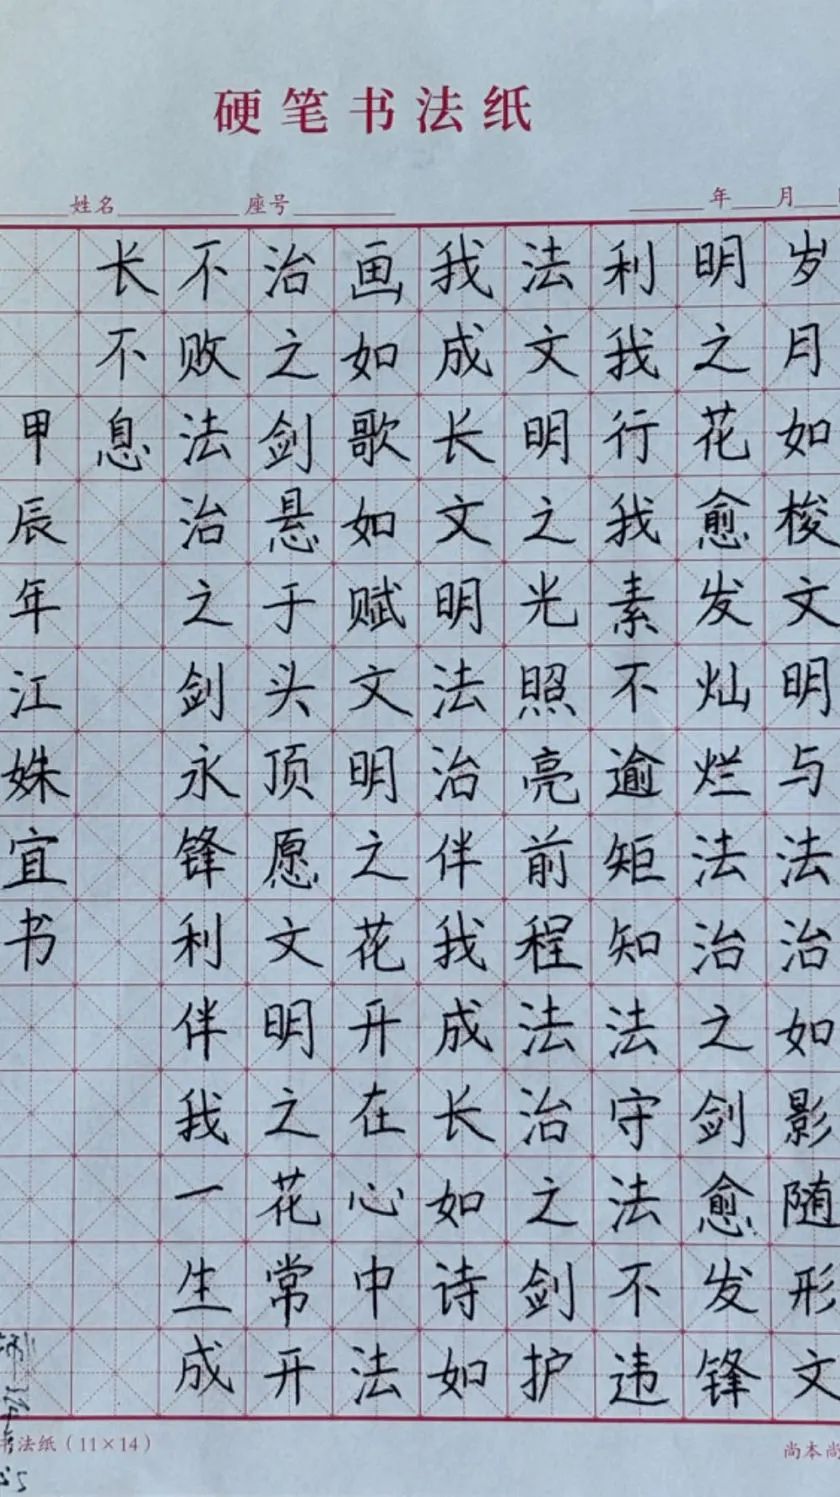 硬笔书法纸
姓名 座号 年 月
岁月如梭文明与法治如影随形文
明之花愈发灿烂法治之剑愈发锋
利我行我素不逾矩知法守法不违
法文明之光照亮前程法治之剑护
我成长文明法治伴我成长如诗如
画如歌如赋文明之花开在心中法
治之剑悬于头顶愿文明之花常开
不败法治之剑永锋利伴我一生成
长不息
甲辰年江姝宜书
书法纸(11×14)
尚本尚